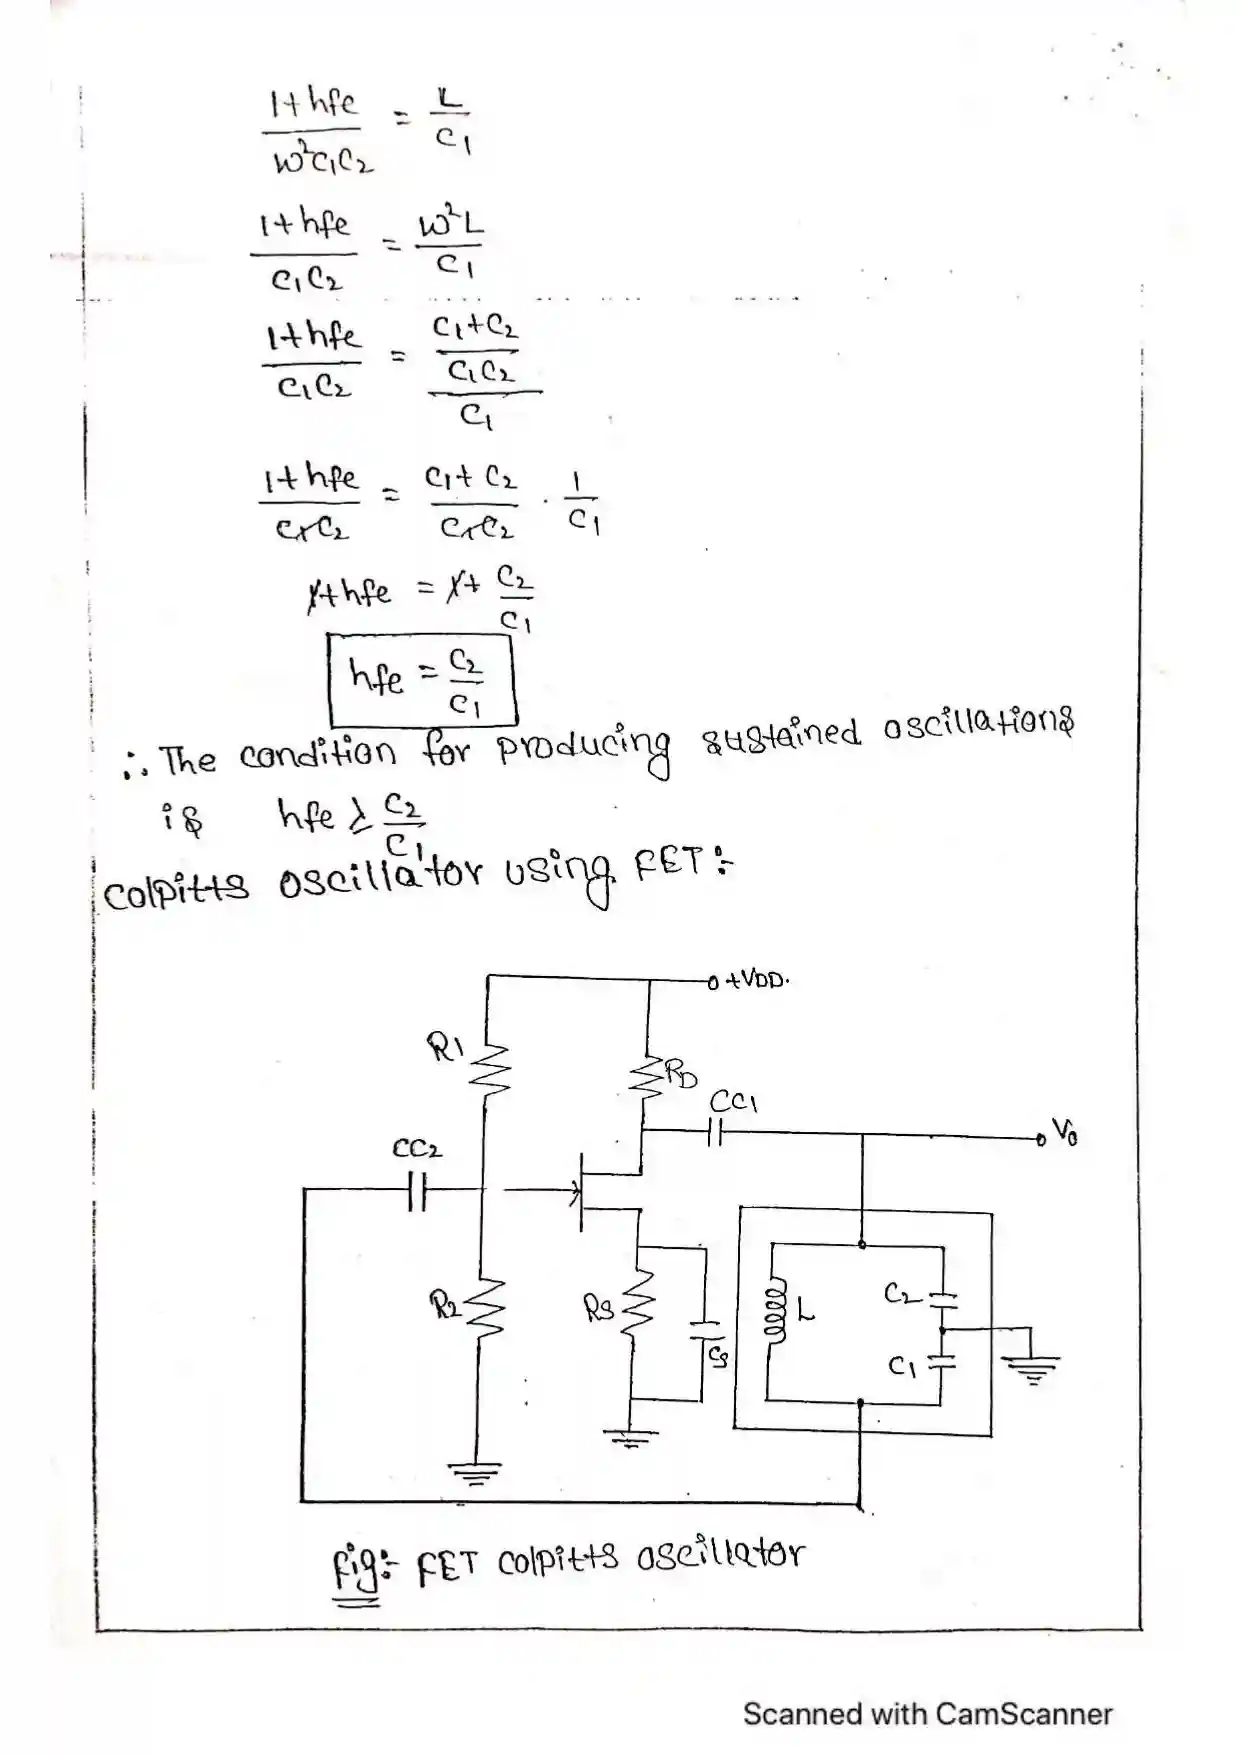 1+hfe / w²C1C2 = L / C1
1+hfe / C1C2 = w²L / C1
1+hfe / C1C2 = C1+C2 / C1C2 / C1
1+hfe / C1C2 = C1+C2 / C1C2 · 1 / C1
1+hfe = 1+ C2 / C1
hfe = C2 / C1
∴ The condition for producing sustained oscillations
is hfe ≥ C2 / C1
Colpitts oscillator using FET:-
+VDD.
R1
RD
CC1
V0
CC2
R2
RS
CS
L
C2
C1
Fig:- FET Colpitts oscillator
Scanned with CamScanner